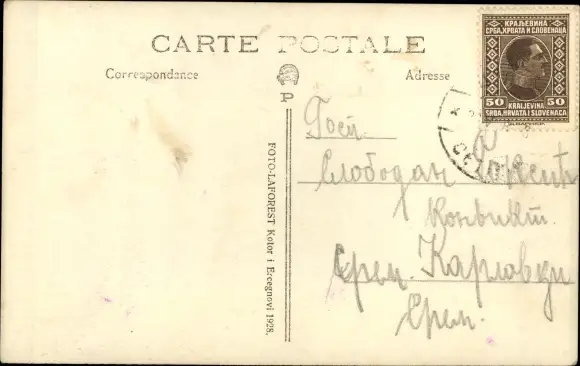 CARTE POSTALE
Correspondance
Adresse
P
FOTO-LAFOREST Kotor i Ercegnovi 1928.
КРАЉЕВИНА
СРБА, ХРВАТА И СЛОВЕНАЦА
50 50
KRALJEVINA
SRBA, HRVATA I SLOVENACA
Госп.
Слободан
Конвикт.
Срем. Карловци
Срем.